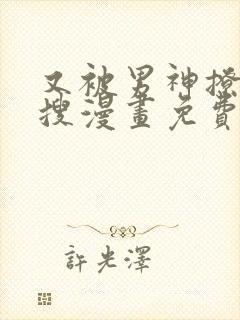 又被男神撩
搜漫畫免費
許光澤